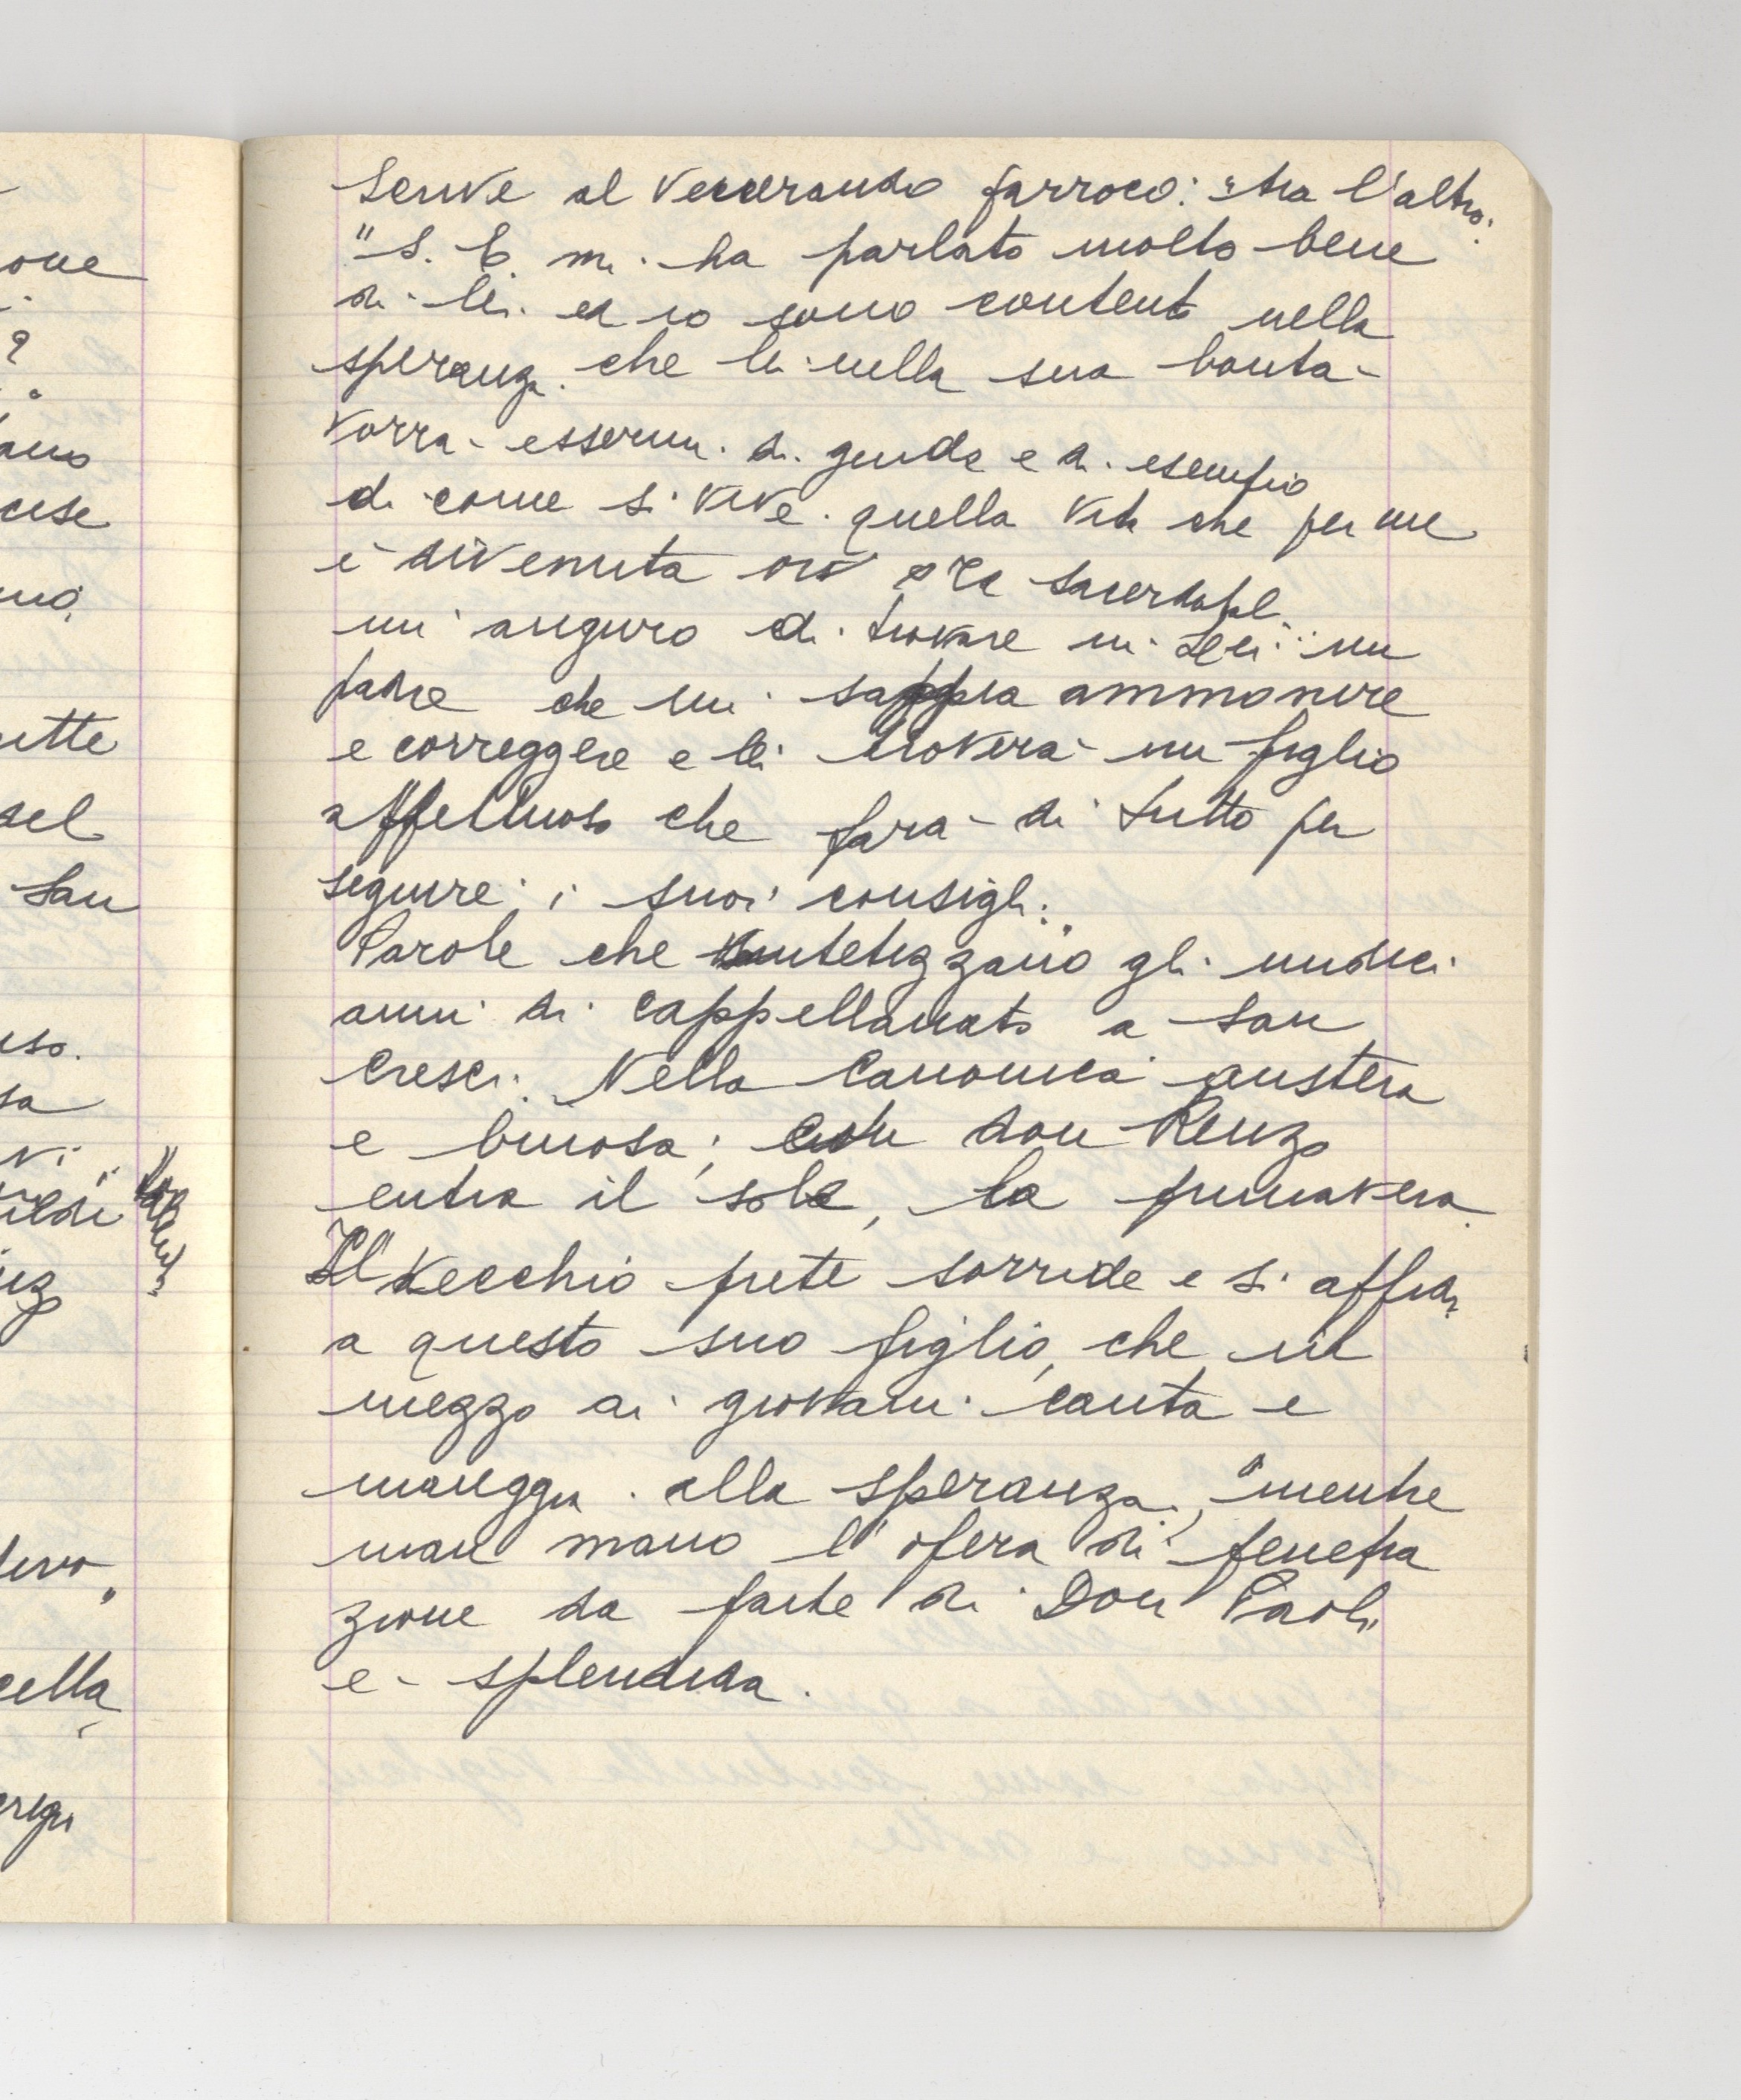 scrive al venerando parroco: "tra l'altro:
"S. E. mi ha parlato molto bene
di lei ed io sono contento nella
speranza che lei nella sua bontà
vorrà essermi di guida e di esempio
di come si vive quella vita che per me
è divenuta ora sacerdotale.
mi auguro di trovare in Lei un
padre che mi sappia ammonire
e correggere e lei troverà un figlio
affettuoso che farà di tutto per
seguire i suoi consigli."
Parole che sintetizzano gli undici
anni di cappellanato a San
Cresci. Nella canonica austera
e buiosa, con don Renzo
entra il sole, la primavera.
Il vecchio prete sorride e si affida
a questo suo figlio, che in
mezzo ai giovani canta e
inneggia alla speranza, mentre
man mano l'opera di penetra
zione da parte di Don Paoli
è splendida.
one
?
ano
ese
ette
del
San
uso.
sa
cella